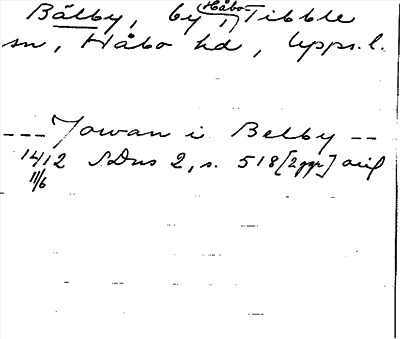 Bålby, by i Håbo-Tibble
sn, Håbo hd, Upps. l.
--- Jowan i Belby --
1412 SDns 2, s. 518 [2 ggr] orig
11/6